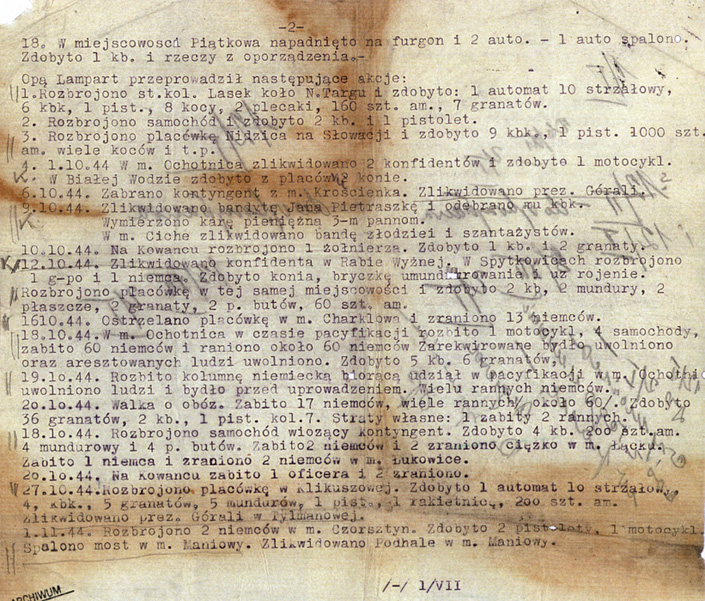 -2-
18. W miejscowoscd Piątkowa napadnięto na furgon i 2 auto. - 1 auto spalono.
Zdobyto 1 kb. i rzeczy z oporządzenia.-
Opą Lampart przeprowadził następujące akcje:
1.Rozbrojono st.kol. Lasek koło N.Targu i zdobyto: 1 automat 10 strzałowy,
6 kbk, 1 pist., 8 kocy, 2 plecaki, 160 szt. am., 7 granatów.
2. Rozbrojono samochód i zdobyto 2 kb. i 1 pistolet.
3. Rozbrojono placówkę Nidzica na Słowacji i zdobyto 9 kbk., 1 pist. 1000 szt.
am. wiele koców i t.p.
4. 1.10.44 W m. Ochotnica zlikwidowano 2 konfidentów i zdobyto 1 motocykl.
W Białej Wodzie zdobyto z placówk 2 konie.
6.10.44. Zabrano kontyngent z m. Krościenka. Zlikwidowano prez. Górali.
9.10.44. Zlikwidowano bandytę Jana Pietraszkę i odebrano mu kbk.
K. Wymierzono karę pieniężna 3-m pannom.
W m. Ciche zlikwidowano bandę złodziei i szantażystów.
10.10.44. Na Kowancu rozbrojono 1 żołnierza. Zdobyto 1 kb. i 2 granaty.
12.10.44. Zlikwidowano konfidenta w Rabie Wyżnej. W Spytkowicach rozbrojono
1 g-po i 1 niemca. Zdobyto konia, bryczkę umundurowania i uz rojenie.
Rozbrojono placówkę w tej samej miejscowości i zdobyto 2 kb, 2 mundury, 2
płaszcze, 2 granaty, 2 p. butów, 60 szt. am.
1610.44. Ostrzelano placówkę w m. Charklowa i zraniono 13 niemców.
18.10.44.W m. Ochotnica w czasie pacyfikacji rozbito 1 motocykl, 4 samochody,
zabito 60 niemców i raniono około 60 niemców Zarekwirowane bydło uwolniono
oraz aresztowanych ludzi uwolniono. Zdobyto 5 kb. 6 granatów.
19.10.44. Rozbito kolumnę niemiecką biorącą udział w pacyfikacji w m. Ochotni
uwolniono ludzi i bydło przed uprowadzeniem. Wielu rannych niemców.
20.10.44. Walka o obóz. Zabito 17 niemców, wiele rannych/ około 60/. Zdobyto
36 granatów, 2 kb., 1 pist. kol.7. Straty własne: 1 zabity 2 rannych.
18.10.44. Rozbrojono samochód wiozący kontyngent. Zdobyto 4 kb. 200 szt.am.
4 mundurowy i 4 p. butów. Zabito2 niemców i 2 zraniono ciężko w m. Łącku.
Zabito 1 niemca i zraniono 2 niemców w m. Łukowice.
20.10.44. Na Kowancu zabito 1 oficera i 2 zraniono.
27.10.44.Rozbrojono placówkę w Klikuszowej. Zdobyto 1 automat 10 strzałow.
4, kbk., 5 granatów, 5 mundurów, 1 pist., 1 rakietnicę, 200 szt. am.
Zlikwidowano prez. Górali w Tylmanowej.
1.11.44. Rozbrojono 2 niemców w m. Czorsztyn. Zdobyto 2 pistolety, 1 motocykl.
Spalono most w m. Maniowy. Zlikwidowano Podhale w m. Maniowy.
/-/ 1/VII
ARCHIWUM